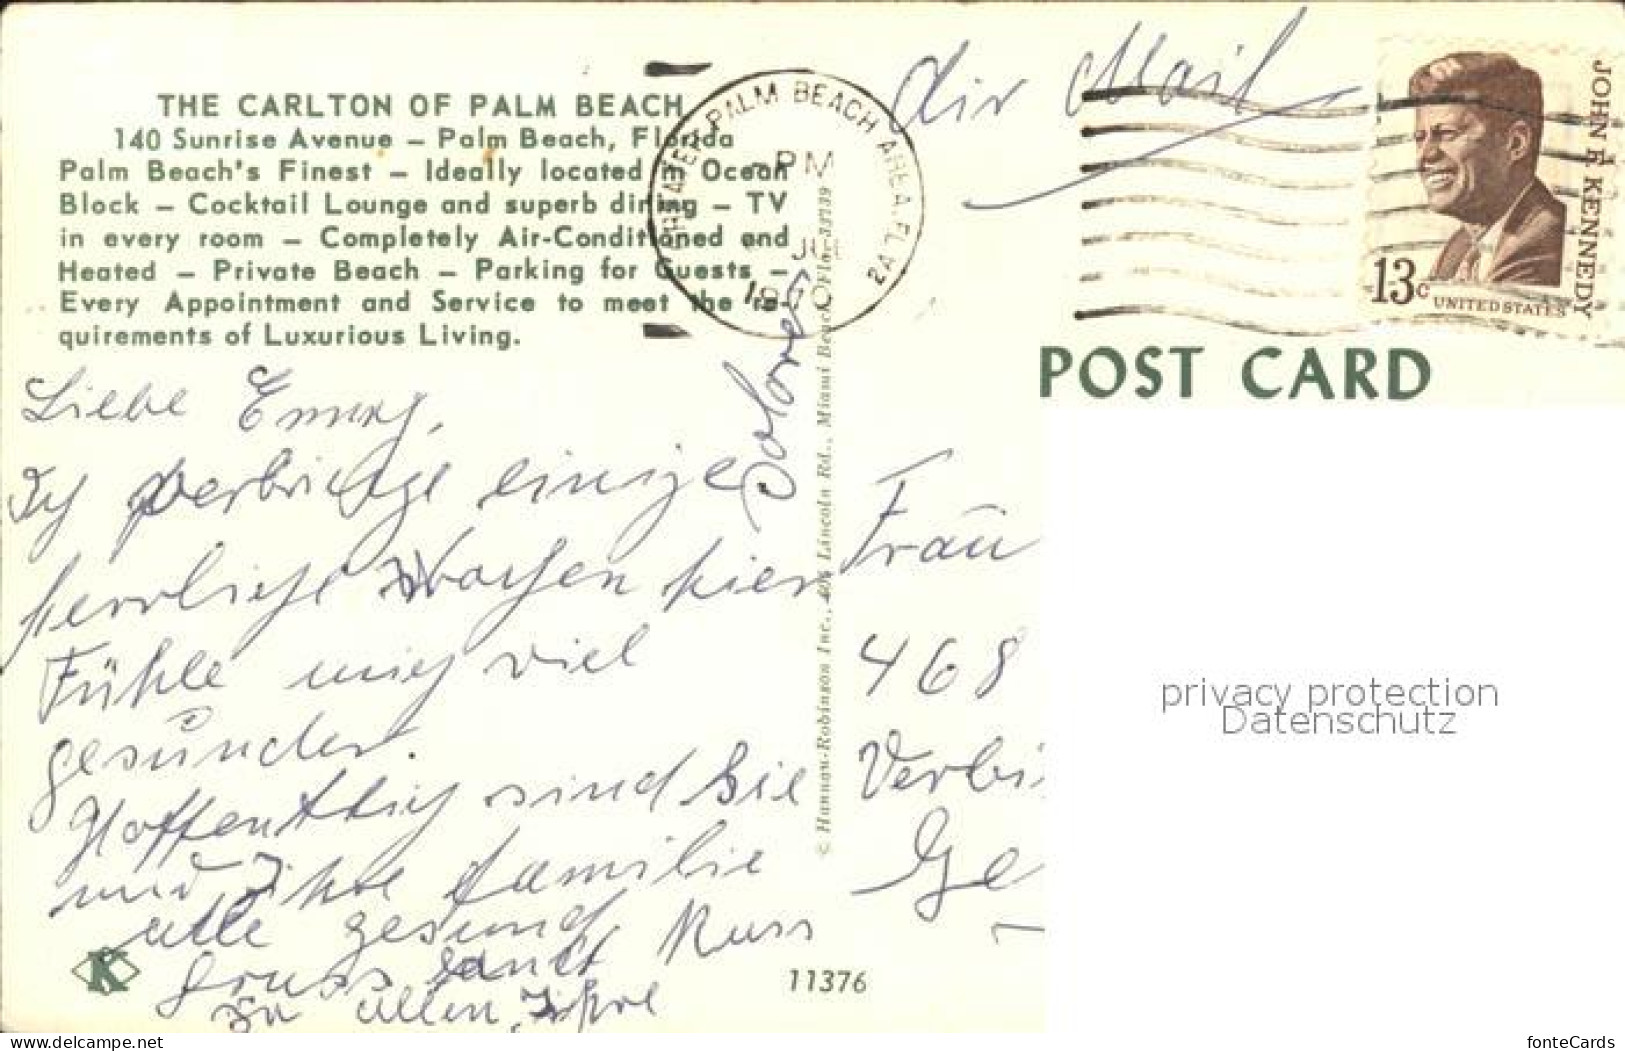 THE CARLTON OF PALM BEACH
140 Sunrise Avenue – Palm Beach, Florida
Palm Beach's Finest – Ideally located in Ocean
Block – Cocktail Lounge and superb dining – TV
in every room – Completely Air-Conditioned and
Heated – Private Beach – Parking for Guests –
Every Appointment and Service to meet the re-
quirements of Luxurious Living.
PALM BEACH AREA, FL
PM
2A
Air Mail
JOHN F. KENNEDY
13c
UNITED STATES
POST CARD
Liebe Emmy,
Ich verbringe einige
herrliche Wochen hier
Fühle mich viel
gesünder.
Hoffentlich sind Sie
und Ihre Familie
alle gesund
Gruss und Kuss
zu allen, Ihre
Dolores
© Hannau-Robinson Inc., 406 Lincoln Rd., Miami Beach, Fla. 33139
Frau
468
Verbi
Ge
11376
K
privacy protection
Datenschutz
www.delcampe.net
fonteCards